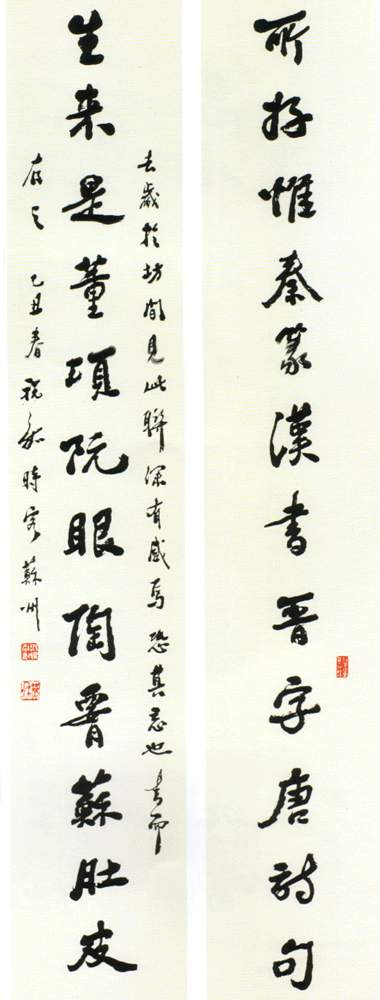 所好惟秦篆漢書晉字唐詩句
去歲於坊間見此聯深有感焉恐其忘也書而
生来是董項阮眼陶胷蘇肚皮
存之 乙丑春 時客蘇州